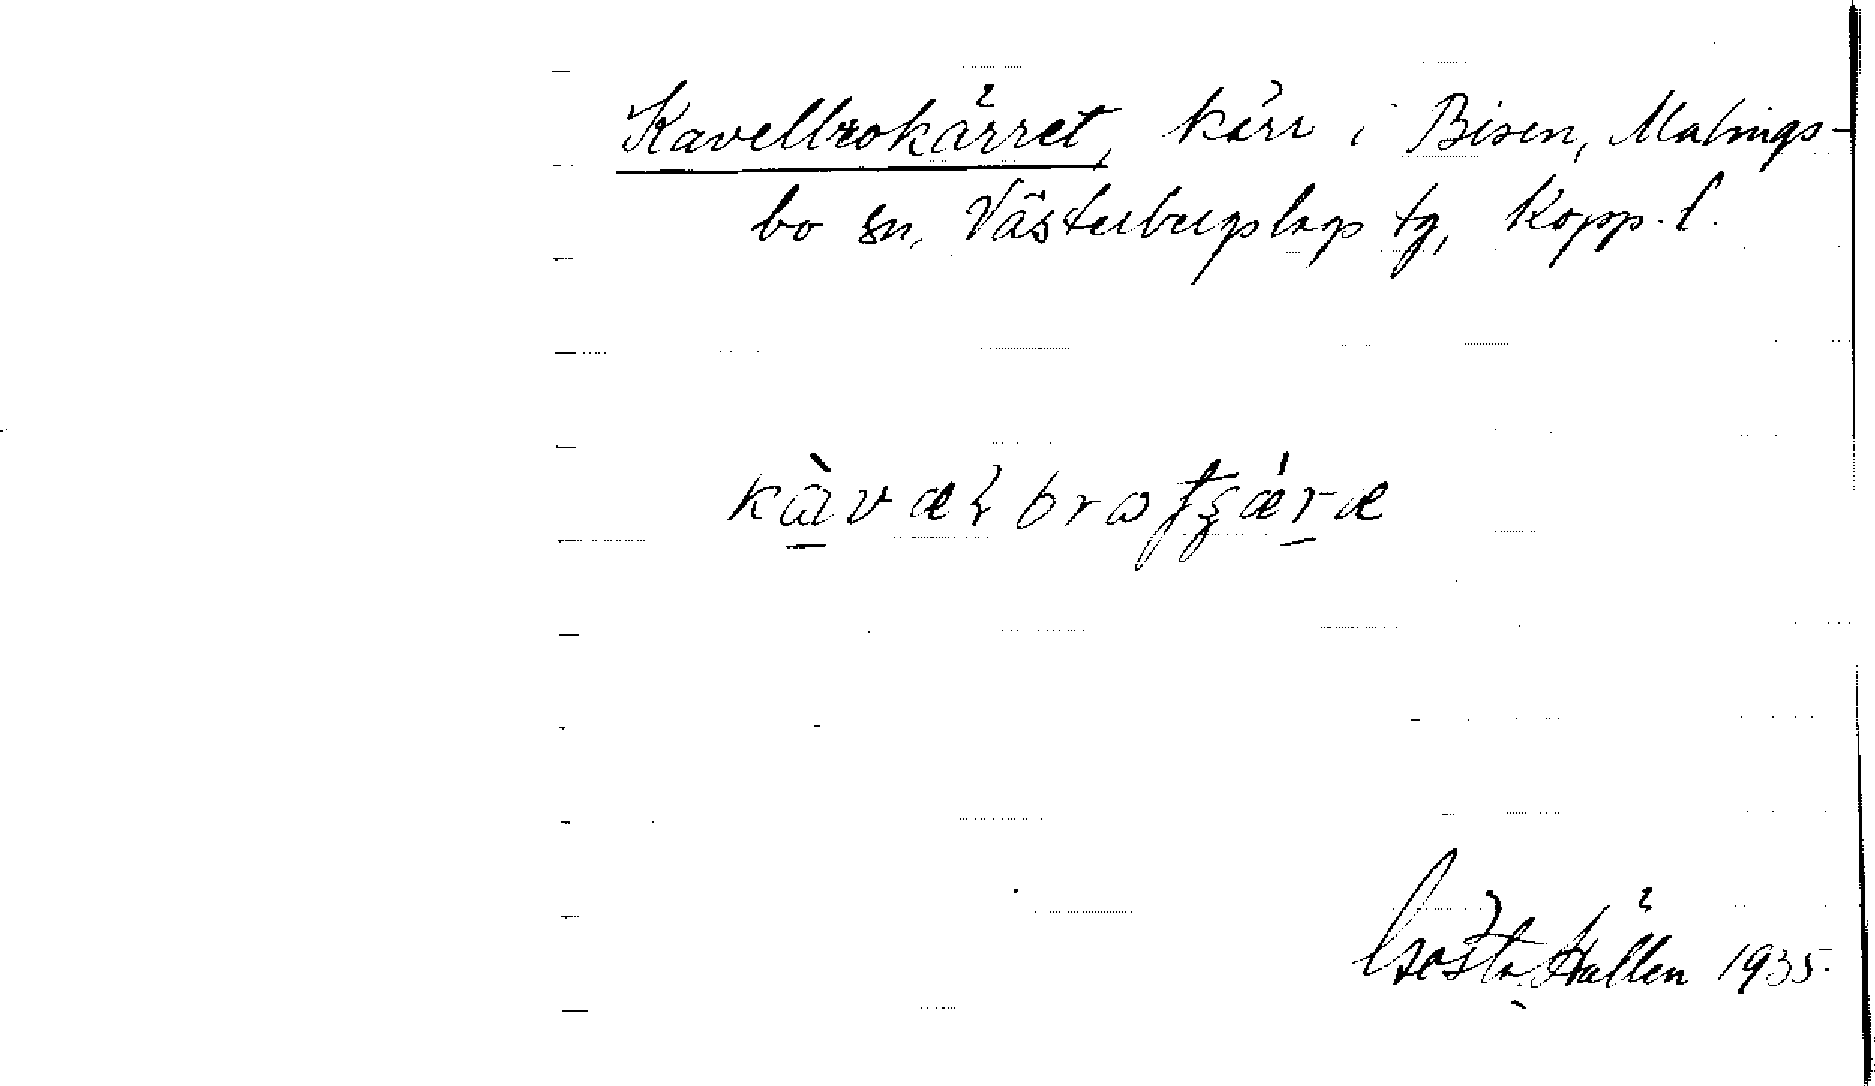 Kavelbrokärret, kärr i Bisen, Malings-
bo sn, Västerbergslags tg, Kopp. l.
kàvælbroʈʂǽræ
Gösta Hällen 1935.